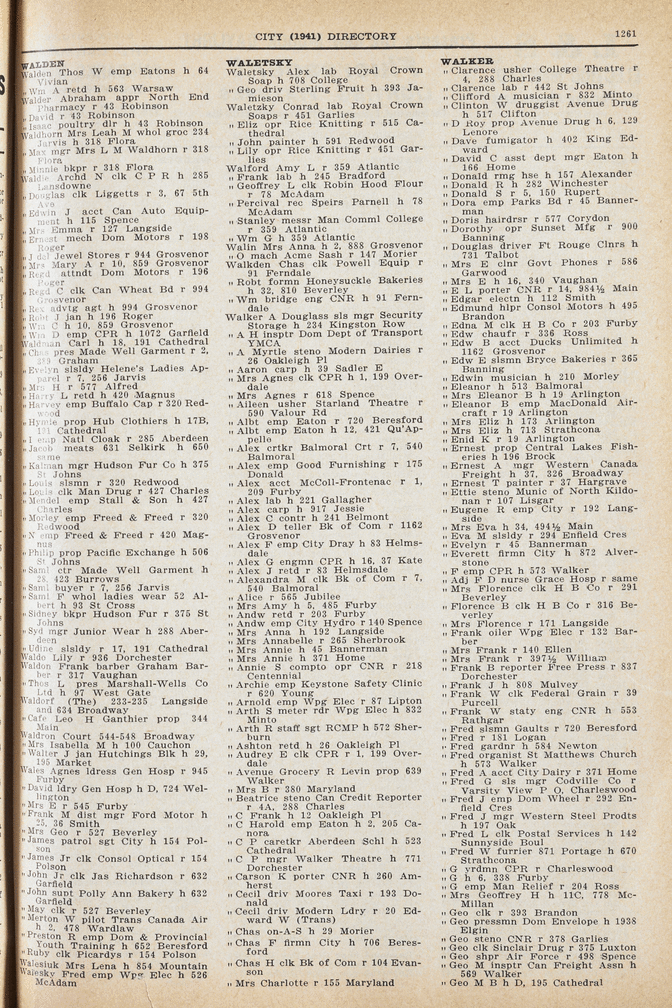 CITY (1941) DIRECTORY
1261
WALDEN
Walden Thos W emp Eatons h 64
Vivian
„ Wm A retd h 563 Warsaw
Walder Abraham appr North End
Pharmacy r 43 Robinson
„ David r 43 Robinson
„ Isaac poultry dlr h 43 Robinson
Waldhorn Mrs Leah M whol groc 234
Jarvis h 318 Flora
„ Max mgr Mrs L M Waldhorn r 318
Flora
„ Minnie bkpr r 318 Flora
Waldie Archd N clk C P R h 285
Lansdowne
„ Douglas clk Liggetts r 3, 67 5th
Ave
„ Edwin J acct Can Auto Equip-
ment h 115 Spence
„ Mrs Emma r 127 Langside
„ Ernest mech Dom Motors r 198
Roger
„ J del Jewel Stores r 944 Grosvenor
„ Mrs Mary A r 10, 859 Grosvenor
„ Regd attndt Dom Motors r 196
Roger
„ Regd C clk Can Wheat Bd r 994
Grosvenor
„ Rex advtg agt h 994 Grosvenor
„ Robt J jan h 196 Roger
„ Wm C h 10, 859 Grosvenor
„ Wm D emp CPR h 1072 Garfield
Waldman Carl h 18, 191 Cathedral
„ Chas pres Made Well Garment r 2,
389 Graham
„ Evelyn slsldy Helene's Ladies Ap-
parel r 7, 256 Jarvis
„ Mrs H r 577 Alfred
„ Harry L retd h 420 Magnus
„ Harvey emp Buffalo Cap r 320 Red-
wood
„ Hymie prop Hub Clothiers h 17B,
191 Cathedral
„ I emp Natl Cloak r 285 Aberdeen
„ Jacob meats 631 Selkirk h 650
same
„ Kalman mgr Hudson Fur Co h 375
St Johns
„ Louis slsmn r 320 Redwood
„ Louis clk Man Drug r 427 Charles
„ Mendel emp Stall & Son h 427
Charles
„ Morley emp Freed & Freed r 320
Redwood
„ N emp Freed & Freed r 420 Mag-
nus
„ Philip prop Pacific Exchange h 506
St Johns
„ Saml ctr Made Well Garment h
28, 423 Burrows
„ Saml buyer r 7, 256 Jarvis
„ Saml F whol ladies wear 52 Al-
bert h 93 St Cross
„ Sidney bkpr Hudson Fur r 375 St
Johns
„ Syd mgr Junior Wear h 288 Aber-
deen
„ Udine slsldy r 17, 191 Cathedral
Waldo Lily r 936 Dorchester
Waldon Frank barber Graham Bar-
ber r 317 Vaughan
„ Thos L pres Marshall-Wells Co
Ltd h 97 West Gate
Waldorf (The) 233-235 Langside
and 634 Broadway
„ Cafe Leo H Ganthier prop 344
Main
Waldron Court 544-548 Broadway
„ Mrs Isabella M h 100 Cauchon
„ Walter J jan Hutchings Blk h 29,
195 Market
Wales Agnes ldress Gen Hosp r 945
Furby
„ David ldry Gen Hosp h D, 724 Wel-
lington
„ Mrs E r 545 Furby
„ Frank M dist mgr Ford Motor h
25, 36 Smith
„ Mrs Geo r 527 Beverley
„ James patrol sgt City h 154 Pol-
son
„ James Jr clk Consol Optical r 154
Polson
„ John Jr clk Jas Richardson r 632
Garfield
„ John supt Polly Ann Bakery h 632
Garfield
„ May clk r 527 Beverley
„ Merton W pilot Trans Canada Air
h 2, 478 Wardlaw
„ Preston R emp Dom & Provincial
Youth Training h 652 Beresford
„ Ruby clk Picardys r 154 Polson
Walesiuk Mrs Lena h 854 Mountain
Walesky Fred emp Wpg Elec h 526
McAdam
WALETSKY
Waletsky Alex lab Royal Crown
Soap h 708 College
„ Geo driv Sterling Fruit h 393 Ja-
mieson
Waletzky Conrad lab Royal Crown
Soaps r 451 Garlies
„ Eliz opr Rice Knitting r 515 Ca-
thedral
„ John painter h 591 Redwood
„ Lily opr Rice Knitting r 451 Gar-
lies
Walford Amy L r 359 Atlantic
„ Frank lab h 245 Bradford
„ Geoffrey L clk Robin Hood Flour
r 78 McAdam
„ Percival rec Speirs Parnell h 78
McAdam
„ Stanley messr Man Comml College
r 359 Atlantic
„ Wm G h 359 Atlantic
Walin Mrs Anna h 2, 888 Grosvenor
„ O mach Acme Sash r 147 Morier
Walkden Chas clk Powell Equip r
91 Ferndale
„ Robt formn Honeysuckle Bakeries
h 32, 810 Beverley
„ Wm bridge eng CNR h 91 Fern-
dale
Walker A Douglass sls mgr Security
Storage h 234 Kingston Row
„ A H insptr Dom Dept of Transport
YMCA
„ A Myrtle steno Modern Dairies r
26 Oakleigh Pl
„ Aaron carp h 39 Sadler E
„ Mrs Agnes clk CPR h 1, 199 Over-
dale
„ Mrs Agnes r 618 Spence
„ Aileen usher Starland Theatre r
590 Valour Rd
„ Albt emp Eaton r 720 Beresford
„ Albt emp Eaton h 12, 421 Qu'Ap-
pelle
„ Alex crtkr Balmoral Crt r 7, 540
Balmoral
„ Alex emp Good Furnishing r 175
Donald
„ Alex acct McColl-Frontenac r 1,
209 Furby
„ Alex lab h 221 Gallagher
„ Alex carp h 917 Jessie
„ Alex C contr h 241 Belmont
„ Alex D teller Bk of Com r 1162
Grosvenor
„ Alex F emp City Dray h 83 Helms-
dale
„ Alex G engmn CPR h 16, 37 Kate
„ Alex J retd r 83 Helmsdale
„ Alexandra M clk Bk of Com r 7,
540 Balmoral
„ Alice r 565 Jubilee
„ Mrs Amy h 5, 485 Furby
„ Andw retd r 203 Furby
„ Andw emp City Hydro r 140 Spence
„ Mrs Anna h 192 Langside
„ Mrs Annabelle r 265 Sherbrook
„ Mrs Annie h 45 Bannerman
„ Mrs Annie h 371 Home
„ Annie S compto opr CNR r 218
Centennial
„ Archie emp Keystone Safety Clinic
r 620 Young
„ Arnold emp Wpg Elec r 87 Lipton
„ Arth S meter rdr Wpg Elec h 832
Minto
„ Arth R staff sgt RCMP h 572 Sher-
burn
„ Ashton retd h 26 Oakleigh Pl
„ Audrey E clk CPR r 1, 199 Over-
dale
„ Avenue Grocery R Levin prop 639
Walker
„ Mrs B r 380 Maryland
„ Beatrice steno Can Credit Reporter
r 4A, 288 Charles
„ C Frank h 12 Oakleigh Pl
„ C Harold emp Eaton h 2, 205 Ca-
nora
„ C P caretkr Aberdeen Schl h 523
Cathedral
„ C P mgr Walker Theatre h 771
Dorchester
„ Carson K porter CNR h 260 Am-
herst
„ Cecil driv Moores Taxi r 193 Do-
nald
„ Cecil driv Modern Ldry r 20 Ed-
ward W (Trans)
„ Chas on-A-S h 29 Morier
„ Chas F firmn City h 706 Beres-
ford
„ Chas H clk Bk of Com r 104 Evan-
son
„ Mrs Charlotte r 155 Maryland
WALKER
„ Clarence usher College Theatre r
4, 288 Charles
„ Clarence lab r 442 St Johns
„ Clifford A musician r 832 Minto
„ Clinton W druggist Avenue Drug
h 517 Clifton
„ D Roy prop Avenue Drug h 6, 129
Lenore
„ Dave fumigator h 402 King Ed-
ward
„ David C asst dept mgr Eaton h
166 Home
„ Donald rmg hse h 157 Alexander
„ Donald R h 282 Winchester
„ Donald S r 5, 150 Rupert
„ Dora emp Parks Bd r 45 Banner-
man
„ Doris hairdrsr r 577 Corydon
„ Dorothy opr Sunset Mfg r 900
Banning
„ Douglas driver Ft Rouge Clnrs h
731 Talbot
„ Mrs E clnr Govt Phones r 586
Garwood
„ Mrs E h 16, 340 Vaughan
„ E L porter CNR r 14, 984½ Main
„ Edgar electn h 112 Smith
„ Edmund hlpr Consol Motors h 495
Brandon
„ Edna M clk H B Co r 203 Furby
„ Edw chaufr r 336 Ross
„ Edw B acct Ducks Unlimited h
1162 Grosvenor
„ Edw E slsmn Bryce Bakeries r 365
Banning
„ Edwin musician h 210 Morley
„ Eleanor h 513 Balmoral
„ Mrs Eleanor B h 19 Arlington
„ Eleanor B emp MacDonald Air-
craft r 19 Arlington
„ Mrs Eliz h 173 Arlington
„ Mrs Eliz h 713 Strathcona
„ Enid K r 19 Arlington
„ Ernest prop Central Lakes Fish-
eries h 196 Brock
„ Ernest A mgr Western Canada
Freight h 37, 326 Broadway
„ Ernest T painter r 37 Hargrave
„ Ettie steno Munic of North Kildo-
nan r 107 Lisgar
„ Eugene R emp City r 192 Lang-
side
„ Mrs Eva h 34, 494½ Main
„ Eva M slsldy r 294 Enfield Cres
„ Evelyn r 45 Bannerman
„ Everett firmn City h 872 Alver-
stone
„ F emp CPR h 573 Walker
„ Adj F D nurse Grace Hosp r same
„ Mrs Florence clk H B Co r 291
Beverley
„ Florence B clk H B Co r 316 Be-
verley
„ Mrs Florence r 171 Langside
„ Frank oiler Wpg Elec r 132 Bar-
ber
„ Mrs Frank r 140 Ellen
„ Mrs Frank r 397½ William
„ Frank B reporter Free Press r 837
Dorchester
„ Frank J h 808 Mulvey
„ Frank W clk Federal Grain r 39
Purcell
„ Frank W staty eng CNR h 553
Rathgar
„ Fred slsmn Gaults r 720 Beresford
„ Fred r 181 Logan
„ Fred gardnr h 584 Newton
„ Fred organist St Matthews Church
h 573 Walker
„ Fred A acct City Dairy r 371 Home
„ Fred G sls mgr Codville Co r
Varsity View P O, Charleswood
„ Fred J emp Dom Wheel r 292 En-
field Cres
„ Fred J mgr Western Steel Prodts
h 197 Oak
„ Fred L clk Postal Services h 142
Sunnyside Boul
„ Fred W furrier 871 Portage h 670
Strathcona
„ G yrdmn CPR r Charleswood
„ G h 6, 338 Furby
„ G emp Man Relief r 204 Ross
„ Mrs Geoffrey H h 11C, 778 Mc-
Millan
„ Geo clk r 393 Brandon
„ Geo pressmn Dom Envelope h 1938
Elgin
„ Geo steno CNR r 378 Garlies
„ Geo clk Sinclair Drug r 375 Luxton
„ Geo shpr Air Force r 498 Spence
„ Geo M insptr Can Freight Assn h
569 Walker
„ Geo M B h D, 195 Cathedral